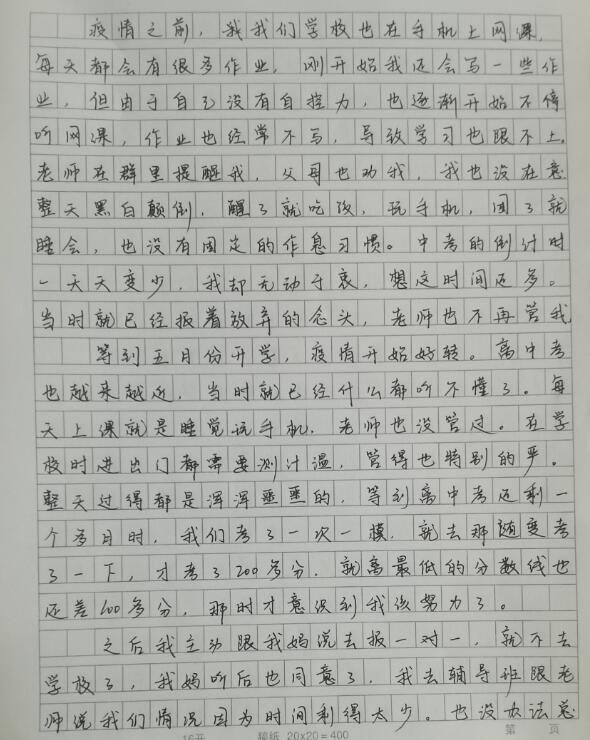 疫情之前，我我们学校也在手机上网课，
每天都会有很多作业，刚开始我还会写一些作
业，但由于自己没有自控力，也逐渐开始不停
听网课，作业也经常不写，导致学习也跟不上。
老师在群里提醒我，父母也劝我，我也没在意
整天黑白颠倒，醒了就吃饭，玩手机，困了就
睡会，也没有固定的作息习惯。中考的倒计时
一天天变少，我却无动于衷，想这时间还多。
当时就已经报着放弃的念头，老师也不再管我
等到五月份开学，疫情开始好转。离中考
也越来越近，当时就已经什么都听不懂了。每
天上课就是睡觉玩手机，老师也没管过。在学
校时进出门都需要测计温，管得也特别的严。
整天过得都是浑浑噩噩的，等到离中考还剩一
个多月时，我们考了一次一模，就去那随变考
了一下，才考了200多分，就离最低的分数线也
还差100多分，那时才意识到我该努力了。
之后我主动跟我妈说去报一对一，就不去
学校了，我妈听后也同意了，我去辅导班跟老
师说我们情况因为时间剩得太少。也没办法总
16开 稿纸 20×20=400 第 页